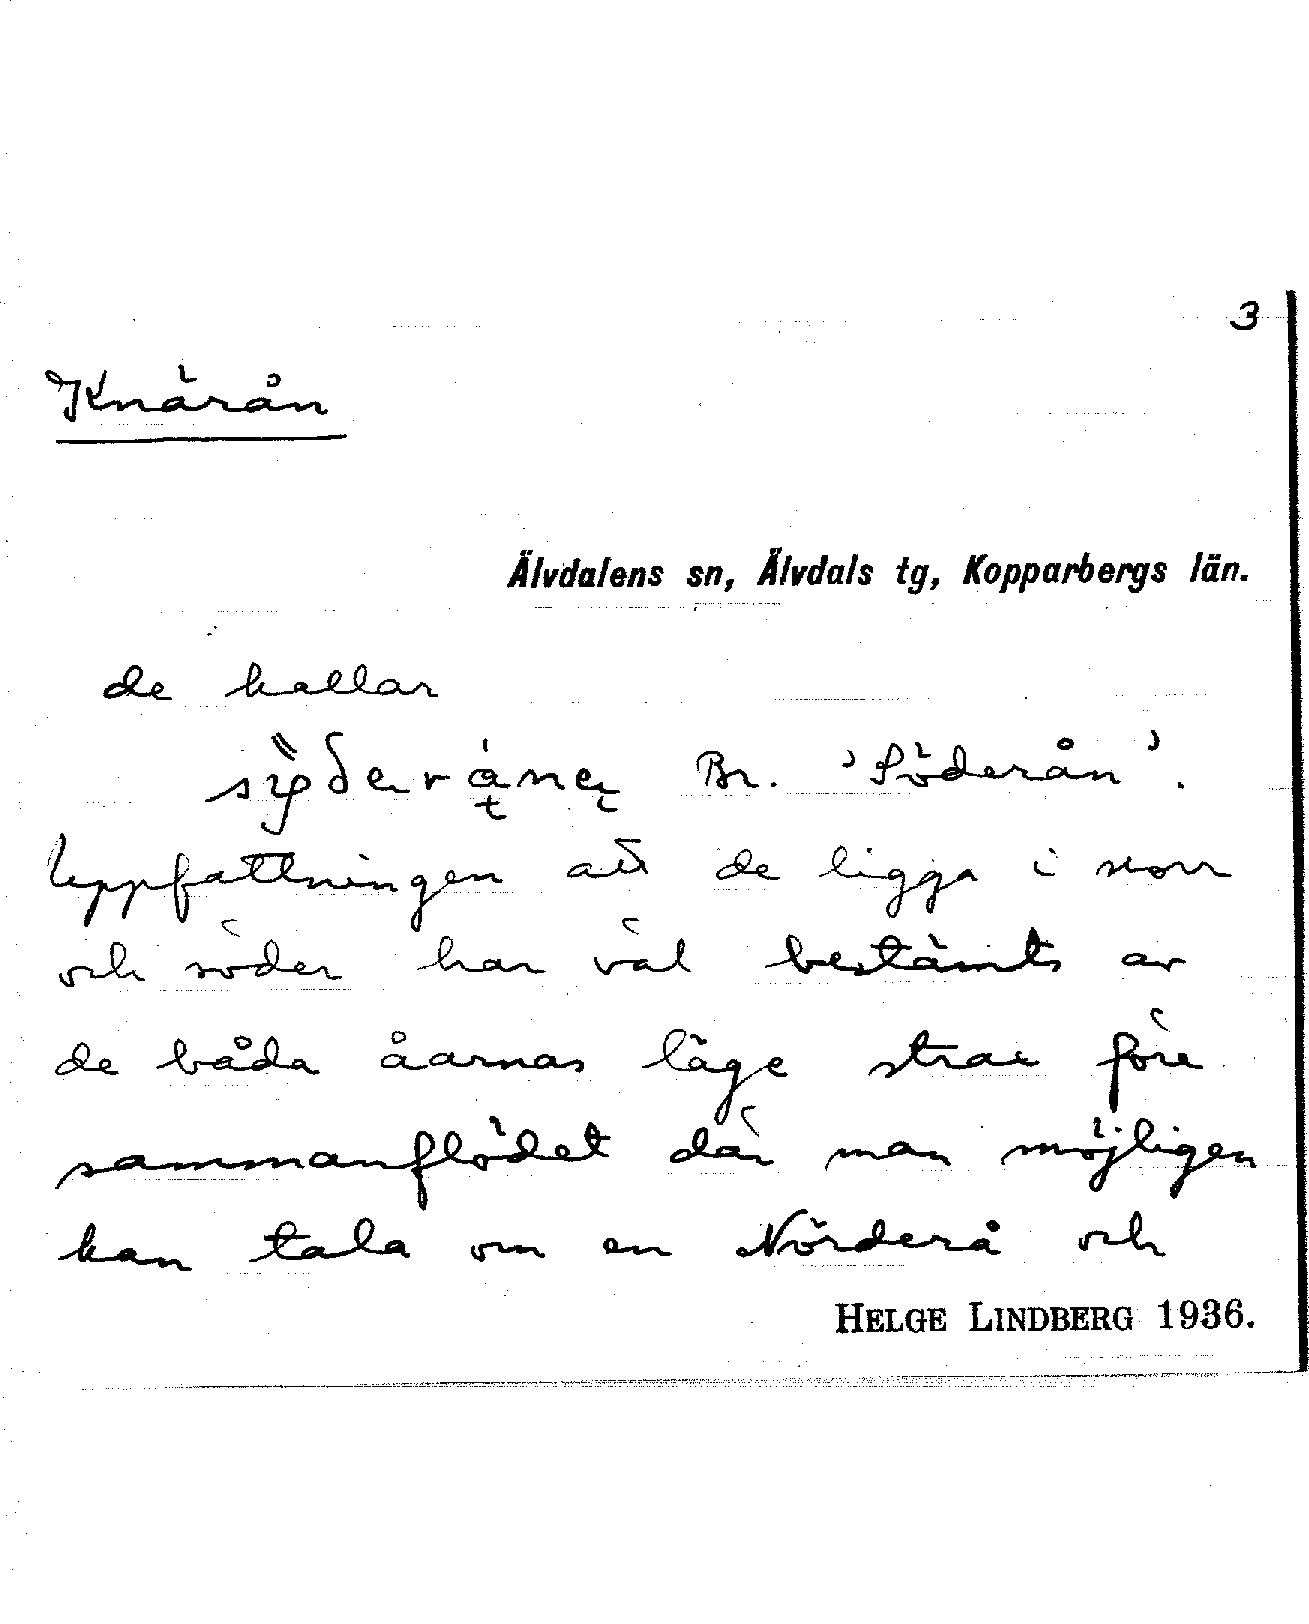 3
Knärån
Älvdalens sn, Älvdals tg, Kopparbergs län.
de kallar
Br. 'Söderån'.
Uppfattningen att de ligga i norr
och söder har väl bestämts av
de båda åarnas läge strax före
sammanflödet där man möjligen
kan tala om en Nörderå och
HELGE LINDBERG 1936.